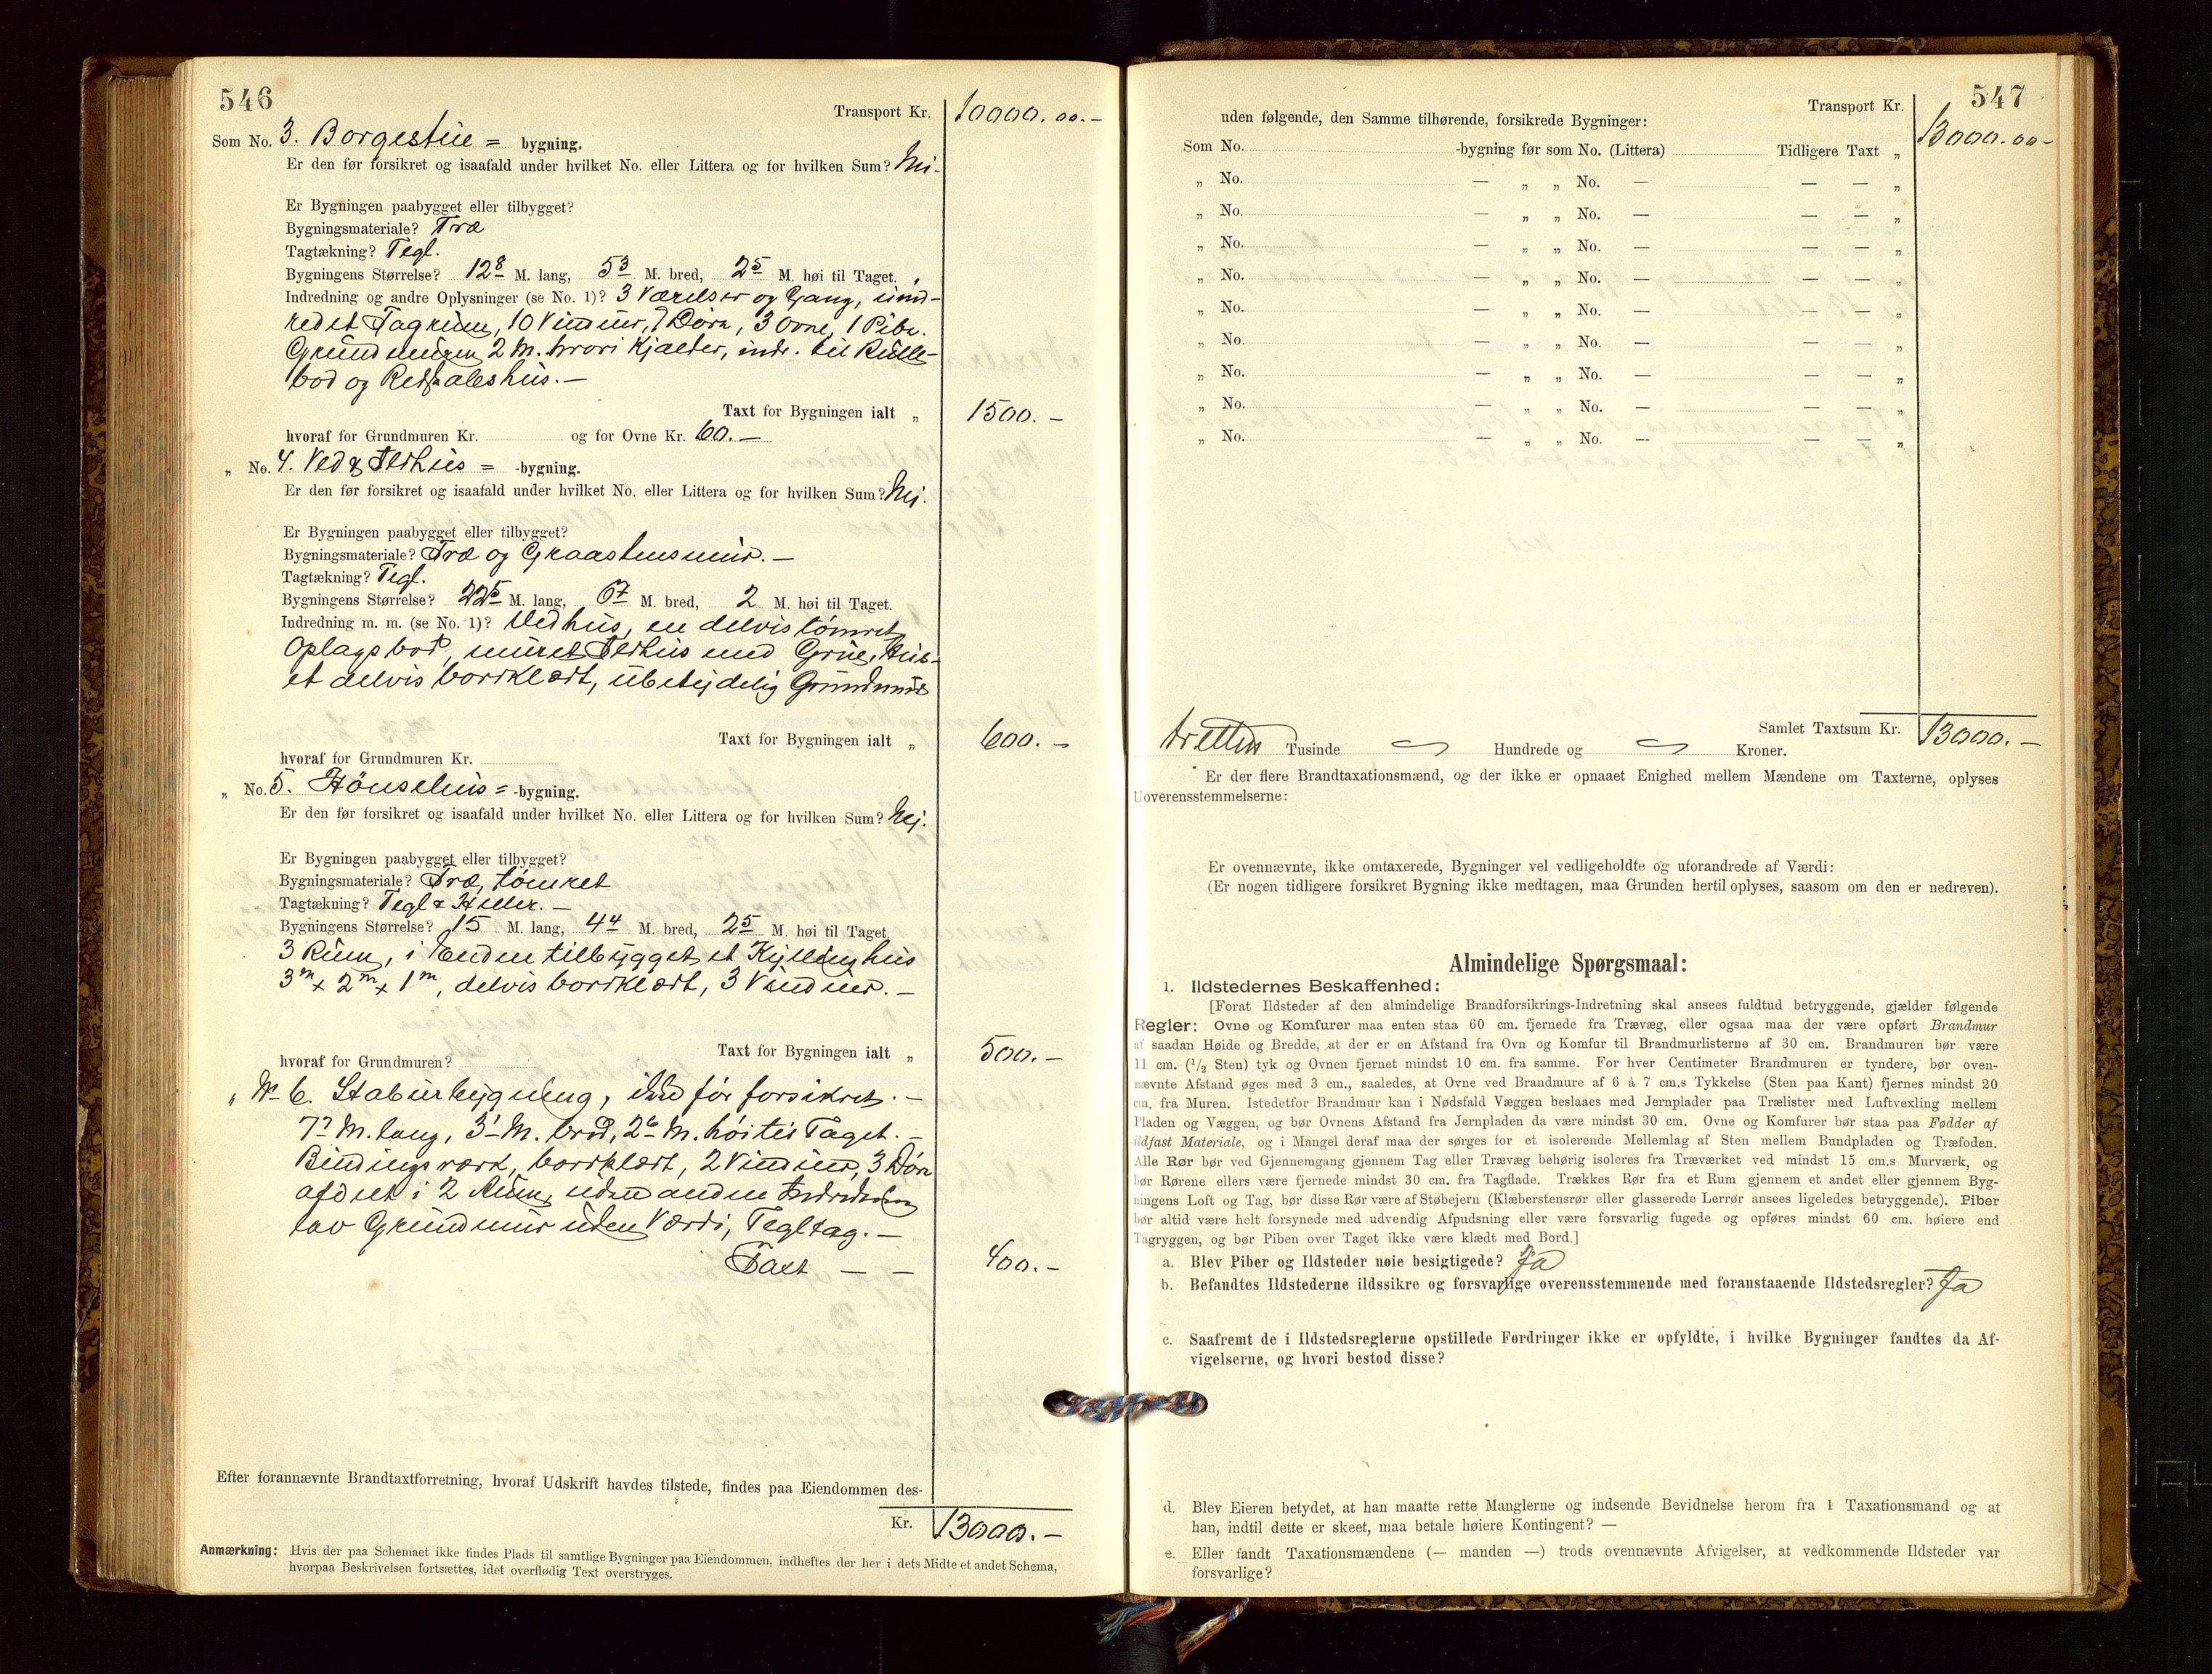 546
Transport Kr. 10000.00.-
Som No. 3. Borgestue = bygning.
Er den før forsikret og isaafald under hvilket No. eller Littera og for hvilken Sum? Nei-
Er Bygningen paabygget eller tilbygget?
Bygningsmateriale? Træ
Tagtækning? Tegl.
Bygningens Størrelse? 12 8 M. lang, 5 3 M. bred, 2 5 M. høi til Taget.
Indredning og andre Oplysninger (se No. 1)? 3 Værelser og Gang, uind-
redet Tagrum, 10 Vinduer, 7 Døre, 3 Ovne, 1 Pibe.
Grundmuren 2 M. hvori Kjælder, indr. til Rulle-
bod og Redskabshus.-
Taxt for Bygningen ialt „ 1500.-
hvoraf for Grundmuren Kr. og for Ovne Kr. 60.-
„ No. 4. Ved & Ildhus = -bygning.
Er den før forsikret og isaafald under hvilket No. eller Littera og for hvilken Sum? Nej.
Er Bygningen paabygget eller tilbygget?
Bygningsmateriale? Træ og Graastensmur.-
Tagtækning? Tegl.
Bygningens Størrelse? 22 5 M. lang, 6 7 M. bred, 2 M. høi til Taget.
Indredning m. m. (se No. 1)? Vedhus, en delvis tømret
Oplagsbod, muret Ildhus med Grue, Hus-
et delvis bordklædt, ubetydelig Grundmur
Taxt for Bygningen ialt „ 600.-
hvoraf for Grundmuren Kr.
„ No. 5. Hönsehus = -bygning.
Er den før forsikret og isaafald under hvilket No. eller Littera og for hvilken Sum? Nej.
Er Bygningen paabygget eller tilbygget?
Bygningsmateriale? Træ, tømret
Tagtækning? Tegl & Heller.-
Bygningens Størrelse? 15 M. lang, 4 4 M. bred, 2 5 M. høi til Taget.
3 Rum, i Enden tilbygget et Kyllinghus
3 m x 2 m x 1 m, delvis bordklædt, 3 Vinduer.-
Taxt for Bygningen ialt „ 500.-
hvoraf for Grundmuren?
„ No 6. Staburbygning, ikke før forsikret.-
7 7 M. lang, 3 1 M. bred, 2 6 M. høi til Taget.-
Bindingsværk, bordklædt, 2 Vinduer, 3 Døre
afdelt i 2 Rum, uden anden Indredning
lav Grundmur uden Værdi, Tegltag.-
Taxt - - 400.-
Efter forannævnte Brandtaxtforretning, hvoraf Udskrift havdes tilstede, findes paa Eiendommen des-
Kr. 13000.-
Anmærkning: Hvis der paa Schemaet ikke findes Plads til samtlige Bygninger paa Eiendommen, indheftes der her i dets Midte et andet Schema,
hvorpaa Beskrivelsen fortsættes, idet overflødig Text overstryges.
547
Transport Kr. 13000.00-
uden følgende, den Samme tilhørende, forsikrede Bygninger:
Som No. -bygning før som No. (Littera) Tidligere Taxt „
„ No. — „ „ No. — — — „
„ No. — „ „ No. — — — „
„ No. — „ „ No. — — — „
„ No. — „ „ No. — — — „
„ No. — „ „ No. — — — „
„ No. — „ „ No. — — — „
„ No. — „ „ No. — — — „
„ No. — „ „ No. — — — „
„ No. — „ „ No. — — — „
Samlet Taxtsum Kr. 13000.-
tretten Tusinde Hundrede og Kroner.
Er der flere Brandtaxationsmænd, og der ikke er opnaaet Enighed mellem Mændene om Taxterne, oplyses
Uoverensstemmelserne:
Er ovennævnte, ikke omtaxerede, Bygninger vel vedligeholdte og uforandrede af Værdi:
(Er nogen tidligere forsikret Bygning ikke medtagen, maa Grunden hertil oplyses, saasom om den er nedreven).
Almindelige Spørgsmaal:
1. Ildstedernes Beskaffenhed:
[Forat Ildsteder af den almindelige Brandforsikrings-Indretning skal ansees fuldtud betryggende, gjælder følgende
Regler: Ovne og Komfurer maa enten staa 60 cm. fjernede fra Trævæg, eller ogsaa maa der være opført Brandmur
af saadan Høide og Bredde, at der er en Afstand fra Ovn og Komfur til Brandmurlisterne af 30 cm. Brandmuren bør være
11 cm. (1/2 Sten) tyk og Ovnen fjernet mindst 10 cm. fra samme. For hver Centimeter Brandmuren er tyndere, bør oven-
nævnte Afstand øges med 3 cm., saaledes, at Ovne ved Brandmure af 6 à 7 cm.s Tykkelse (Sten paa Kant) fjernes mindst 20
cm. fra Muren. Istedetfor Brandmur kan i Nødsfald Væggen beslaaes med Jernplader paa Trælister med Luftvexling mellem
Pladen og Væggen, og bør Ovnens Afstand fra Jernpladen da være mindst 30 cm. Ovne og Komfurer bør staa paa Fødder af
ildfast Materiale, og i Mangel deraf maa der sørges for et isolerende Mellemlag af Sten mellem Bundpladen og Træfoden.
Alle Rør bør ved Gjennemgang gjennem Tag eller Trævæg behørig isoleres fra Træværket ved mindst 15 cm.s Murværk, og
bør Rørene ellers være fjernede mindst 30 cm. fra Tagflade. Trækkes Rør fra et Rum gjennem et andet eller gjennem Byg-
ningens Loft og Tag, bør disse Rør være af Støbejern (Klæberstensrør eller glasserede Lerrør ansees ligeledes betryggende). Piber
bør altid være helt forsynede med udvendig Afpudsning eller være forsvarlig fugede og opføres mindst 60 cm. høiere end
Tagryggen, og bør Piben over Taget ikke være klædt med Bord.]
a. Blev Piber og Ildsteder nøie besigtigede? Ja
b. Befandtes Ildstederne ildssikre og forsvarlige overensstemmende med foranstaaende Ildstedsregler? Ja
c. Saafremt de i Ildstedsreglerne opstillede Fordringer ikke er opfyldte, i hvilke Bygninger fandtes da Af-
vigelserne, og hvori bestod disse?
d. Blev Eieren betydet, at han maatte rette Manglerne og indsende Bevidnelse herom fra 1 Taxationsmand og at
han, indtil dette er skeet, maa betale høiere Kontingent? —
e. Eller fandt Taxationsmændene (— manden —) trods ovennævnte Afvigelser, at vedkommende Ildsteder var
forsvarlige?